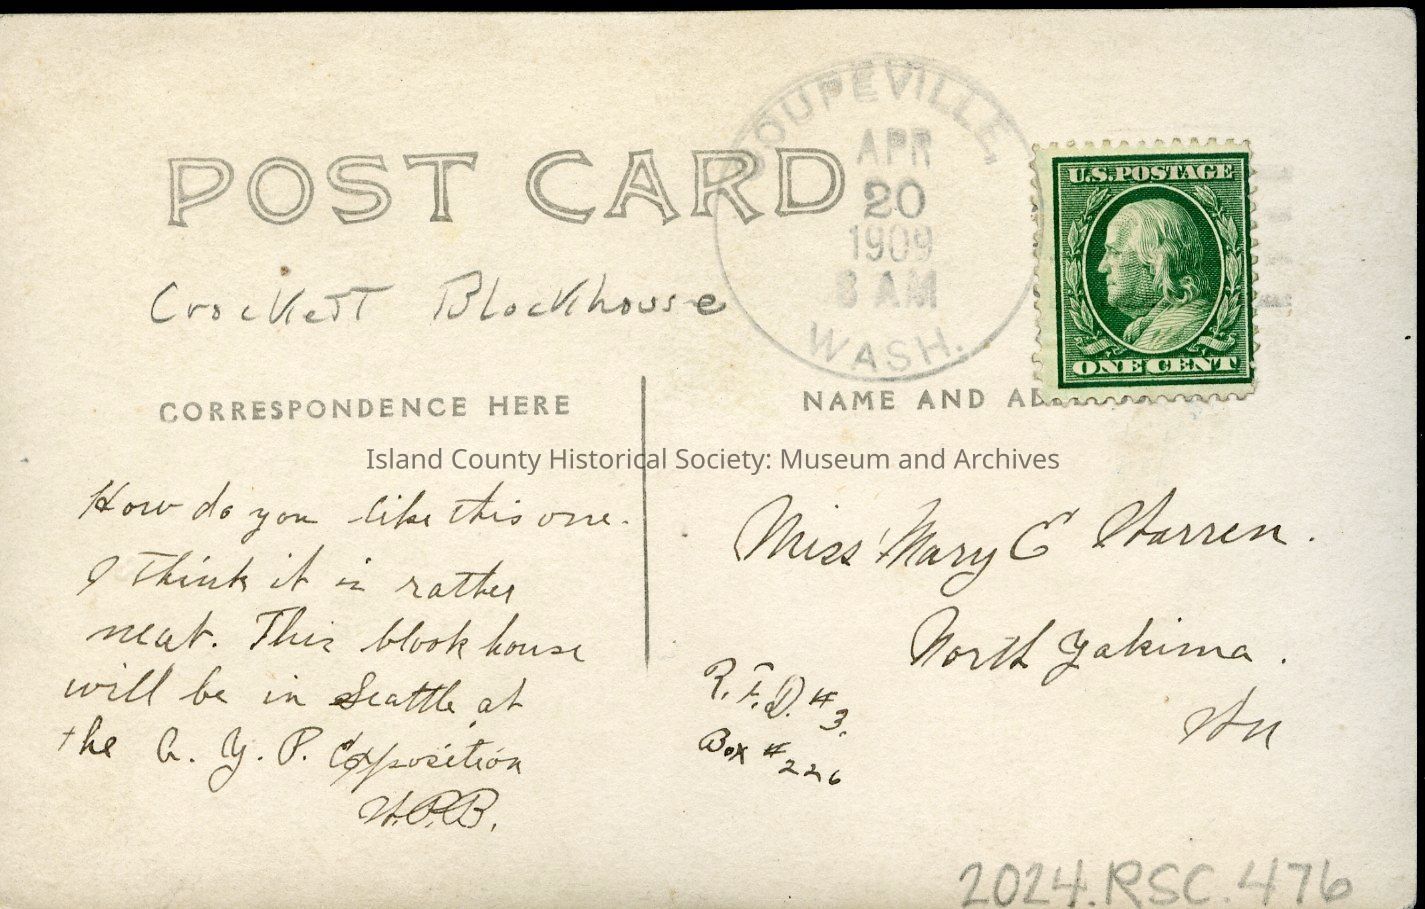 COUPEVILLE,
APR
20
1909
8 AM
WASH.
U.S.POSTAGE
ONE CENT
POST CARD
Crockett Blockhouse
CORRESPONDENCE HERE
NAME AND AD
Island County Historical Society: Museum and Archives
How do you like this one.
I think it is rather
neat. This block house
will be in Seattle at
the A. Y. P. Exposition
Miss Mary E Warren.
North Yakima.
Wn
R.F.D. #3.
Box #226
2024.RSC.476